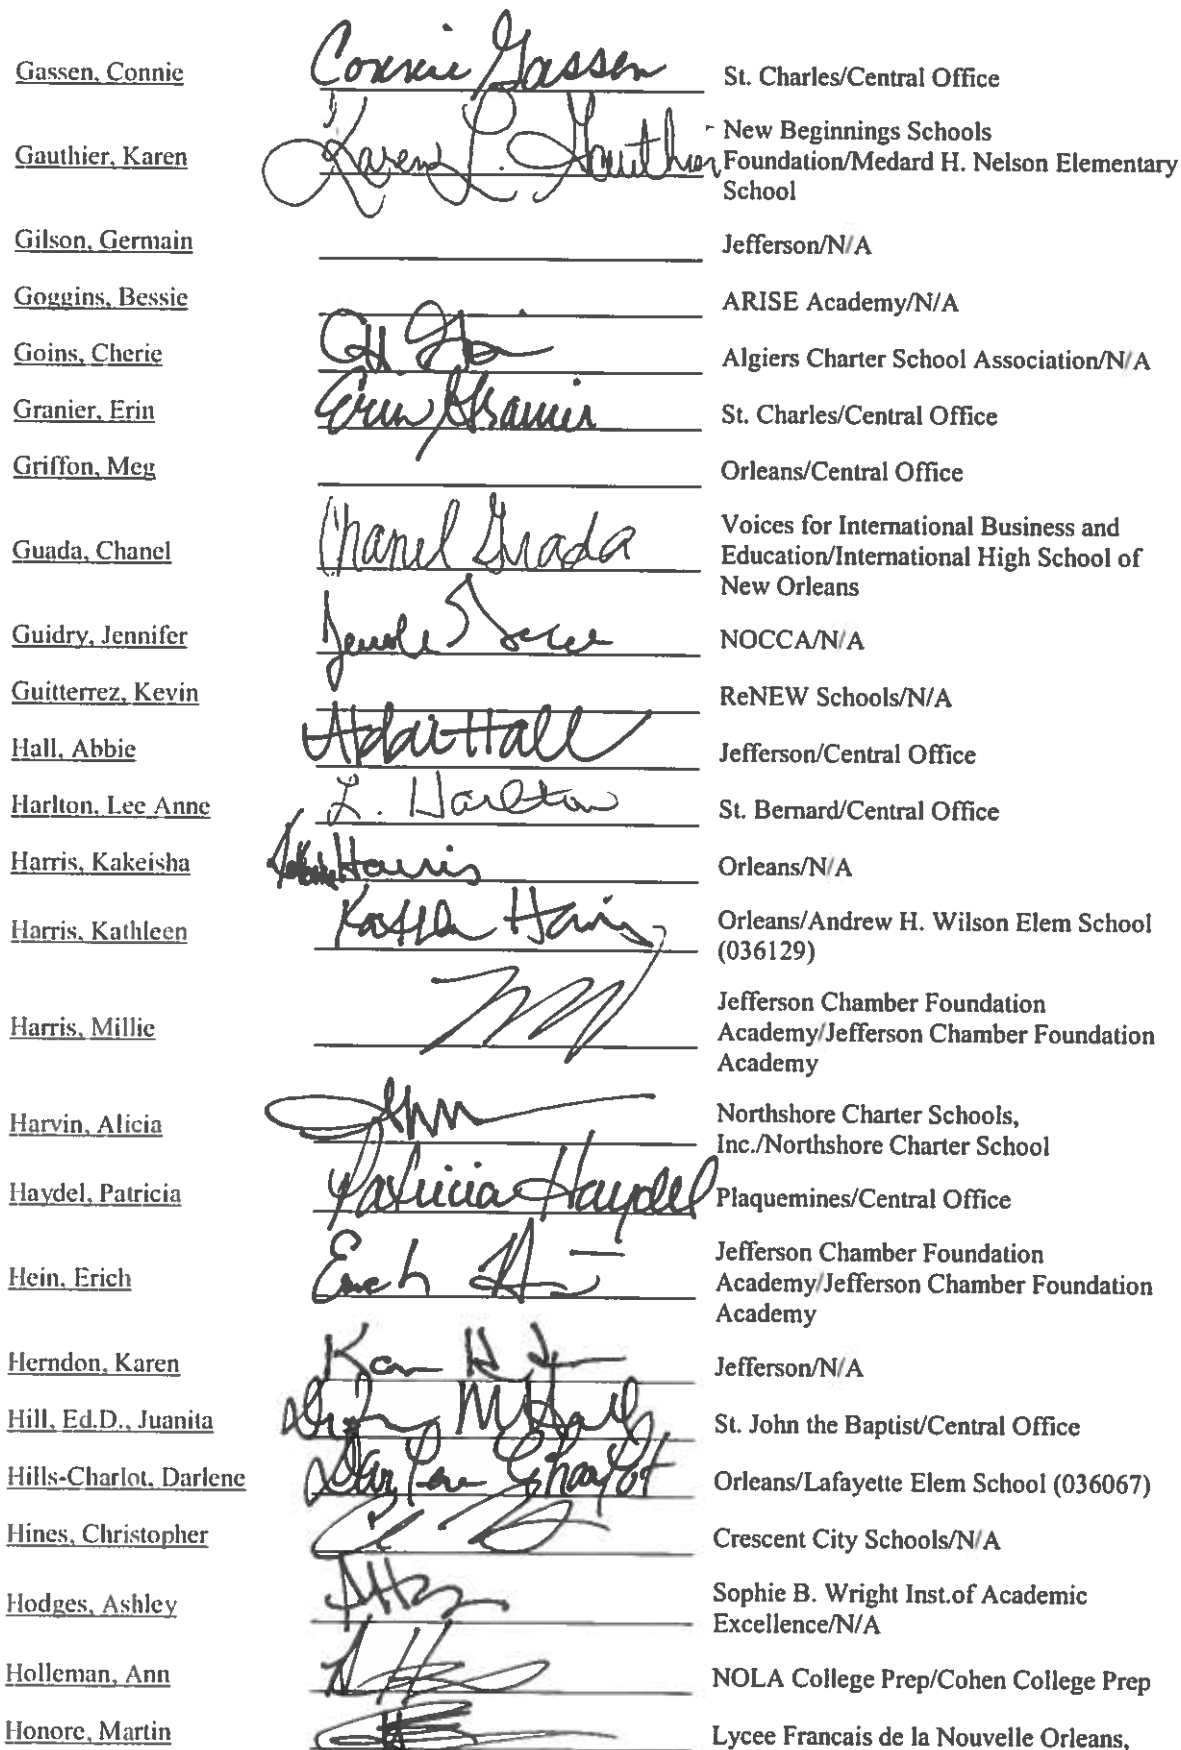 Gassen, Connie Connie Gassen St. Charles/Central Office
Gauthier, Karen Karen L. Gauthier New Beginnings Schools
Foundation/Medard H. Nelson Elementary
School
Gilson, Germain Jefferson/N/A
Goggins, Bessie ARISE Academy/N/A
Goins, Cherie Algiers Charter School Association/N/A
Granier, Erin Erin Granier St. Charles/Central Office
Griffon, Meg Orleans/Central Office
Guada, Chanel Chanel Guada Voices for International Business and
Education/International High School of
New Orleans
Guidry, Jennifer NOCCA/N/A
Guitterrez, Kevin ReNEW Schools/N/A
Hall, Abbie Abbie Hall Jefferson/Central Office
Harlton, Lee Anne L. Harlton St. Bernard/Central Office
Harris, Kakeisha Harris Orleans/N/A
Harris, Kathleen Kathleen Harris Orleans/Andrew H. Wilson Elem School
(036129)
Harris, Millie Jefferson Chamber Foundation
Academy/Jefferson Chamber Foundation
Academy
Harvin, Alicia Northshore Charter Schools,
Inc./Northshore Charter School
Haydel, Patricia Patricia Haydel Plaquemines/Central Office
Hein, Erich Erich Jefferson Chamber Foundation
Academy/Jefferson Chamber Foundation
Academy
Herndon, Karen Jefferson/N/A
Hill, Ed.D., Juanita St. John the Baptist/Central Office
Hills-Charlot, Darlene Darlene Charlot Orleans/Lafayette Elem School (036067)
Hines, Christopher Crescent City Schools/N/A
Hodges, Ashley Sophie B. Wright Inst.of Academic
Excellence/N/A
Holleman, Ann NOLA College Prep/Cohen College Prep
Honore, Martin Lycee Francais de la Nouvelle Orleans,